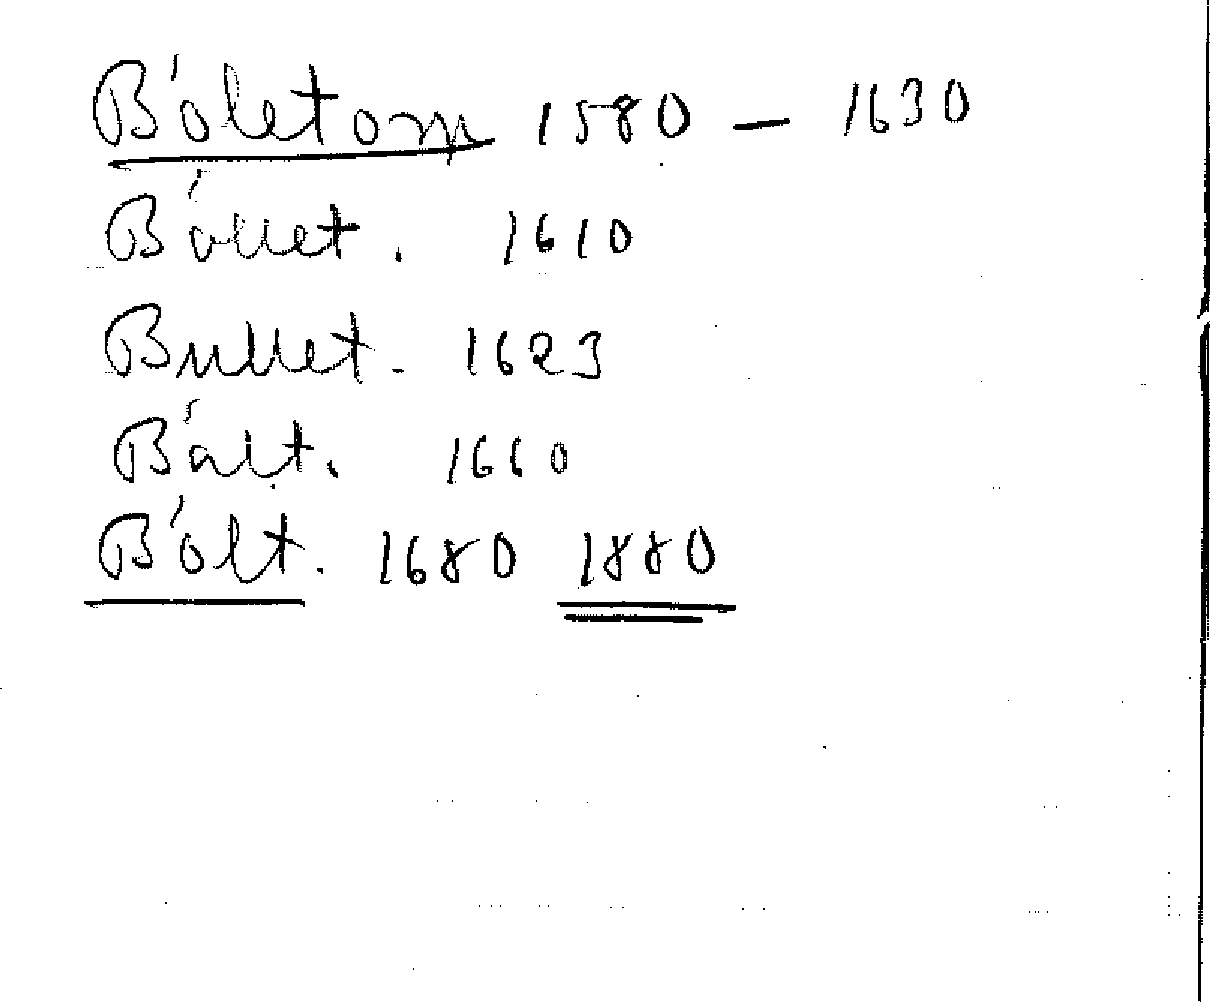 Bóletom 1580 — 1630
Bóllet. 1610
Bullet. 1623
Bált. 1660
Bólt. 1680 1880